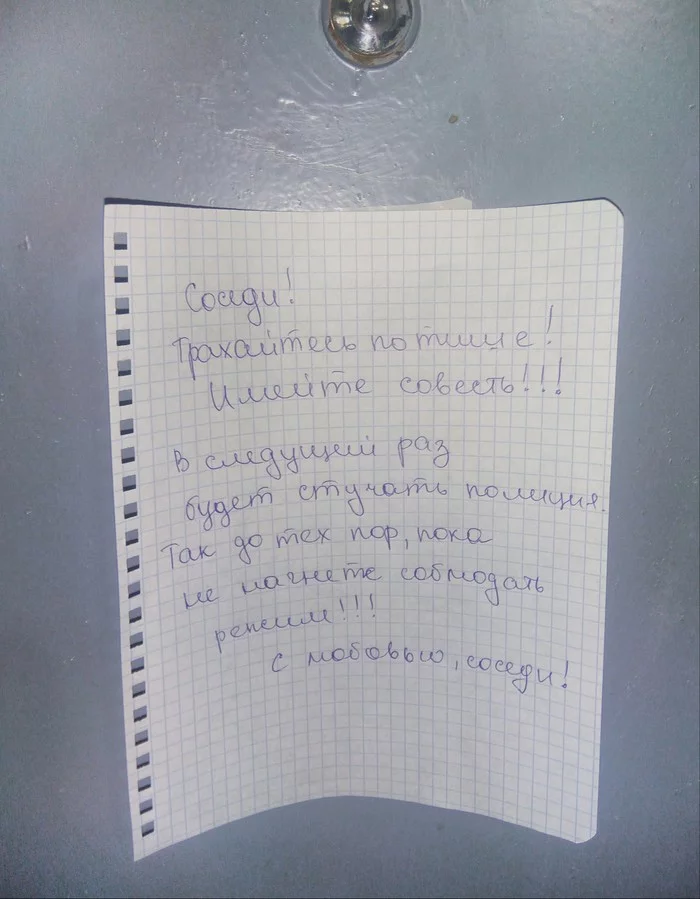 Соседи!
Трахайтесь потише!
Имейте совесть!!!
В следущий раз
будет стучать полиция.
Так до тех пор, пока
не начнете соблюдать
режим!!!
С любовью, соседи!